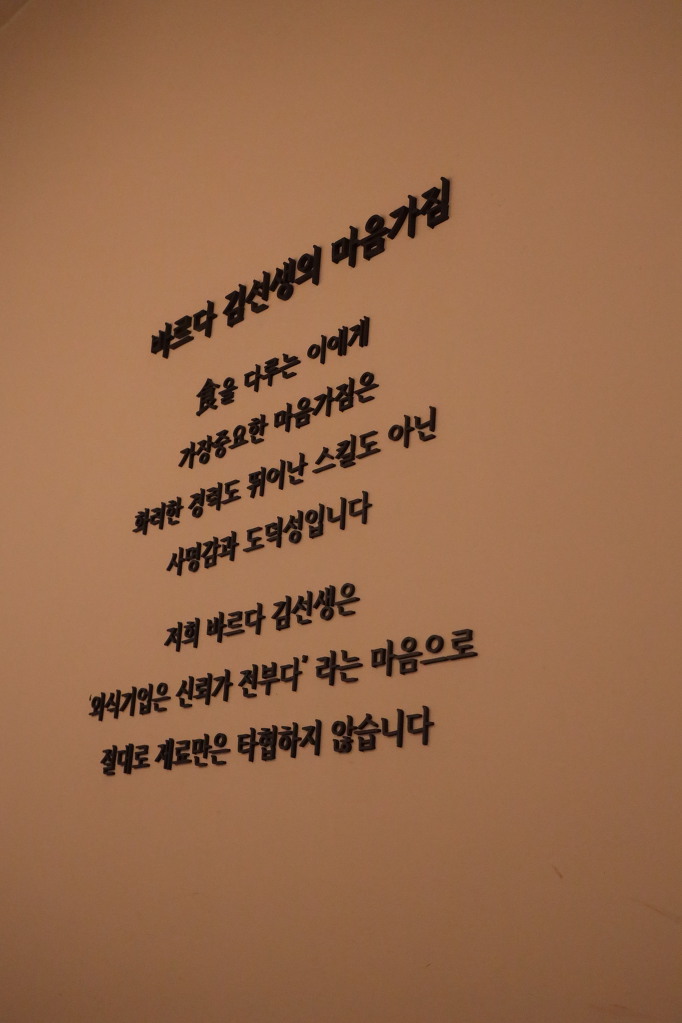 바르다 김선생의 마음가짐
食을 다루는 이에게
가장중요한 마음가짐은
화려한 경력도 뛰어난 스킬도 아닌
사명감과 도덕성입니다
저희 바르다 김선생은
'외식기업은 신뢰가 전부다' 라는 마음으로
절대로 재료만은 타협하지 않습니다